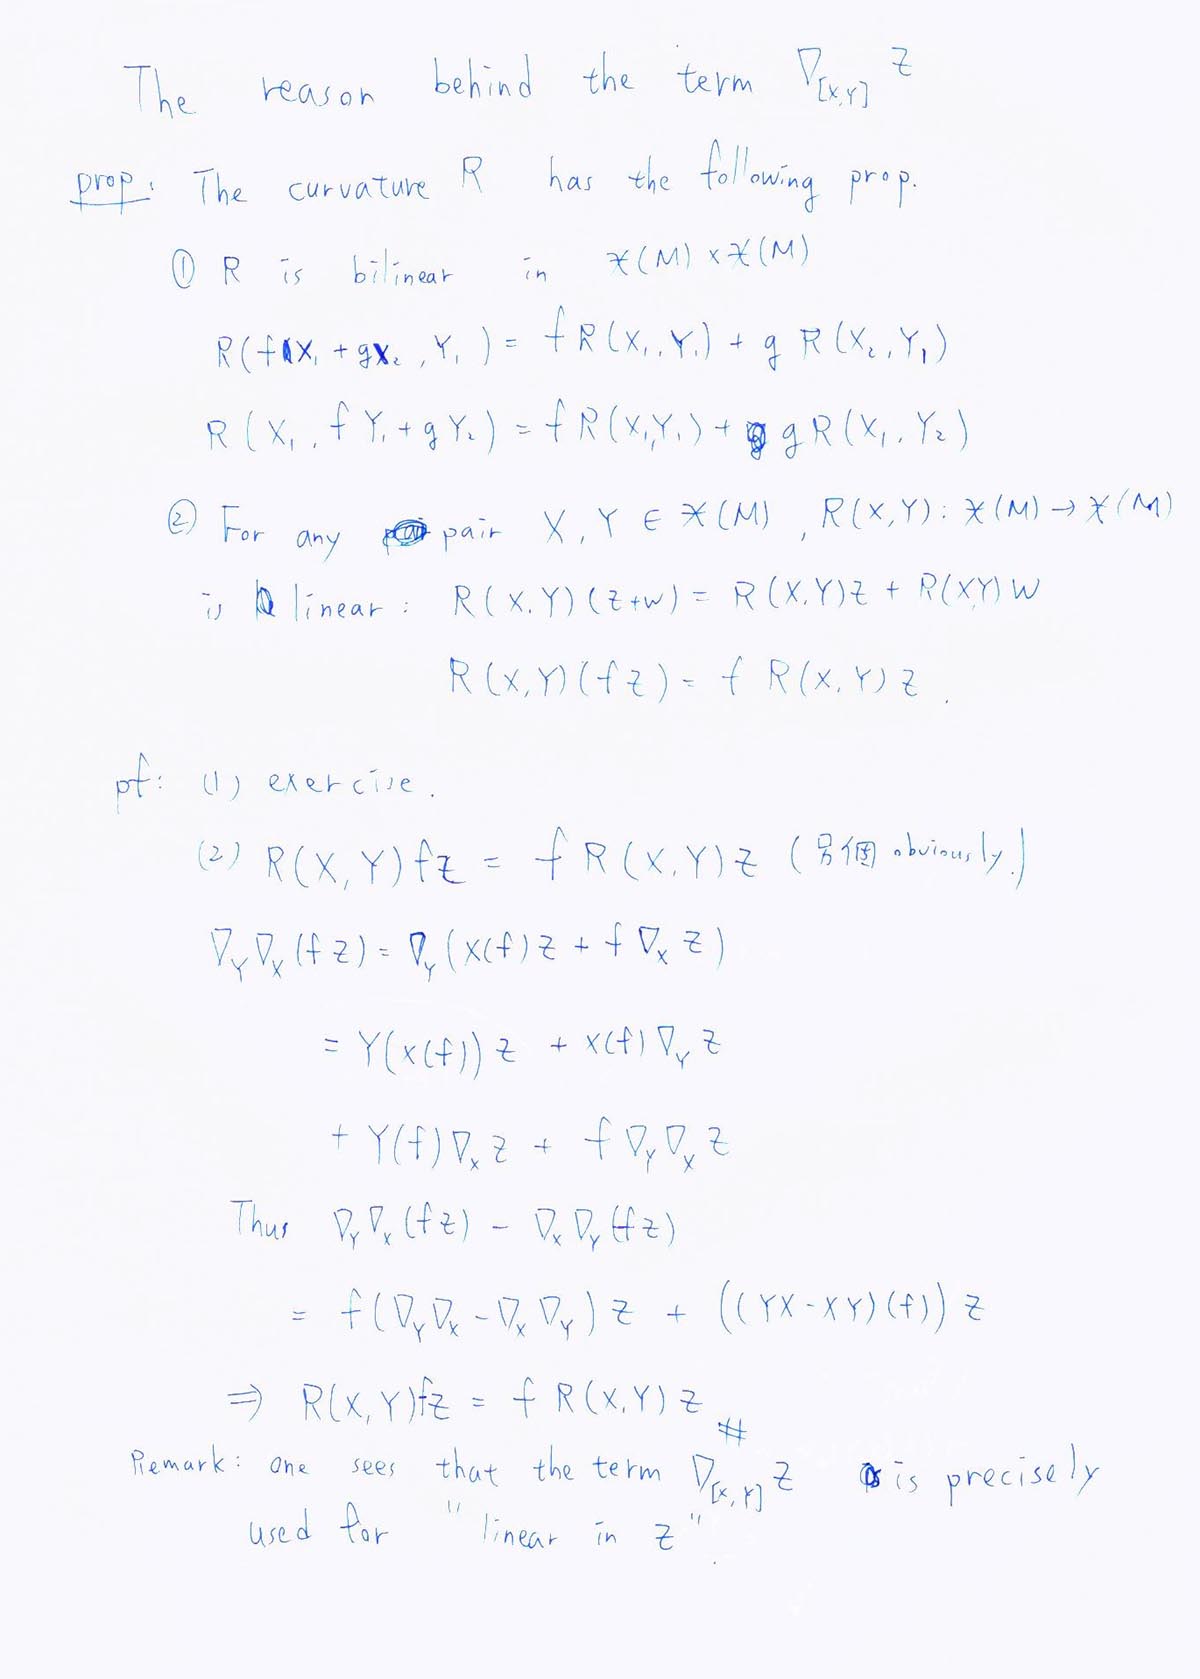 The reason behind the term ∇_[X,Y] Z
prop: The curvature R has the following prop.
① R is bilinear in 𝒳(M) × 𝒳(M)
R(fX₁ + gX₂, Y₁) = fR(X₁, Y₁) + g R(X₂, Y₁)
R(X₁, fY₁ + gY₂) = fR(X₁, Y₁) + gR(X₁, Y₂)
② For any pair X, Y ∈ 𝒳(M), R(X,Y): 𝒳(M) → 𝒳(M)
is linear: R(X,Y)(Z+W) = R(X,Y)Z + R(XY)W
R(X,Y)(fZ) = f R(X,Y)Z.
pf: (1) exercise.
(2) R(X,Y)fZ = fR(X,Y)Z (另個 obviously.)
∇_Y ∇_X (fZ) = ∇_Y (X(f)Z + f∇_X Z)
= Y(X(f))Z + X(f)∇_Y Z
+ Y(f)∇_X Z + f∇_Y ∇_X Z
Thus ∇_Y ∇_X (fZ) - ∇_X ∇_Y (fZ)
= f(∇_Y ∇_X - ∇_X ∇_Y)Z + ((YX-XY)(f))Z
⇒ R(X,Y)fZ = fR(X,Y)Z #
Remark: one sees that the term ∇_[X,Y] Z is precisely
used for "linear in Z".